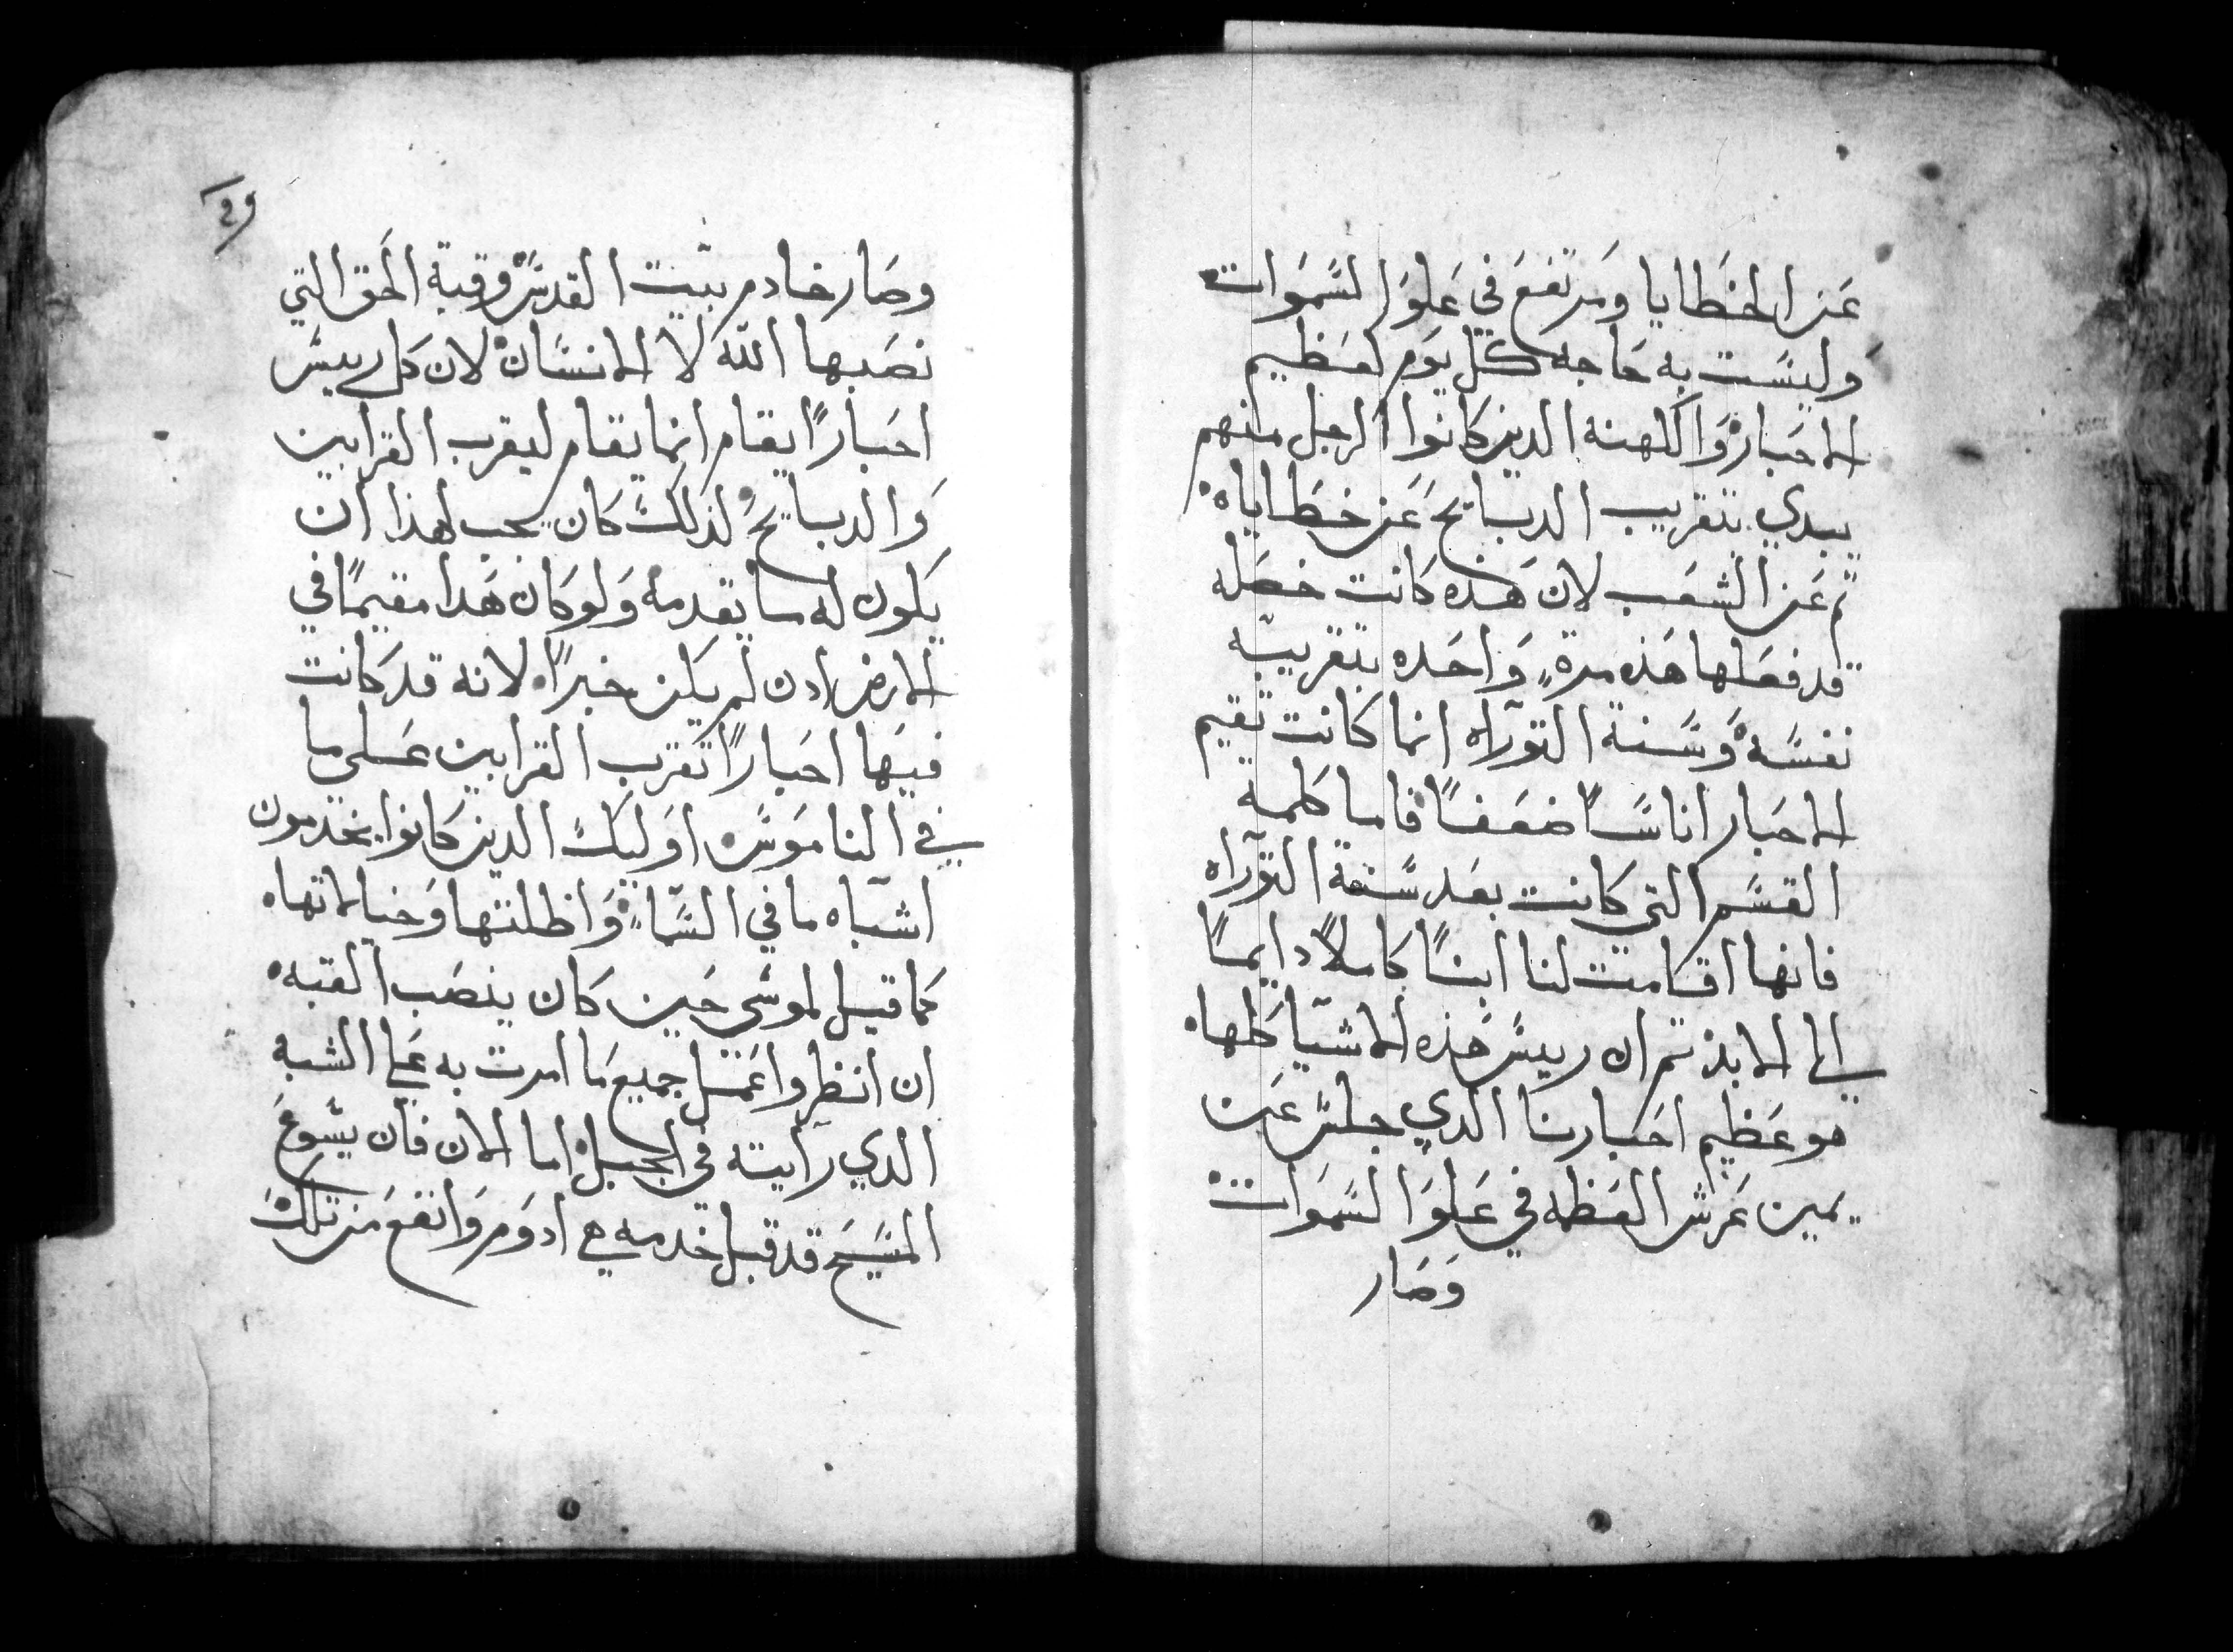 عن الخطايا ومرتفع في علو السموات
وليست به حاجه كل يوم لعظيم
الاحبار والكهنه الدين كانوا الرجل منهم
يبدي بتقريب الدبايح عن خطاياه
ثم عن الشعب لان هذه كانت خصله
قد فعلها هذه مرةٍ واحده بتقريبه
نفسه وسنة التوراه انما كانت تقيم
الاحبار اناسًا ضعفًا فاما كلمة
القسم التي كانت بعد سنة التوراه
فانها اقامت لنا ابنًا كاملًا دايمًا
الي الابد تم ان رييس هذه الاشيا كلها
هو عظيم احبارنا الدي جلس عن
يمين عرش العظمه في علو السموات
وصار
29
وصار خادم بيت القدس وقبة الحق التي
نصبها الله لا الانسان لان كل رييس
احبارًا يقام انما يقام ليقرب القرابين
والدبايح لذلك كان يجب لهذا ان
يكون له ما يقدمه ولو كان هدا مقيمًا في
الارض ادن لم يكن حبرًا لانه قد كانت
فيها احبارًا تقرب القرابين على ما
في الناموس اوليك الدين كانوا يخدمون
اشباه ما في السماءِ واظلتها وخيالاتها
كما قيل لموسى حين كان ينصب القبه
ان انظر واعمل جميع ما امرت به علي الشبه
الدي رايته في الجبل اما الان فان يسوع
المسيح قد قبل خدمه هي ادوم وانفع من تلك